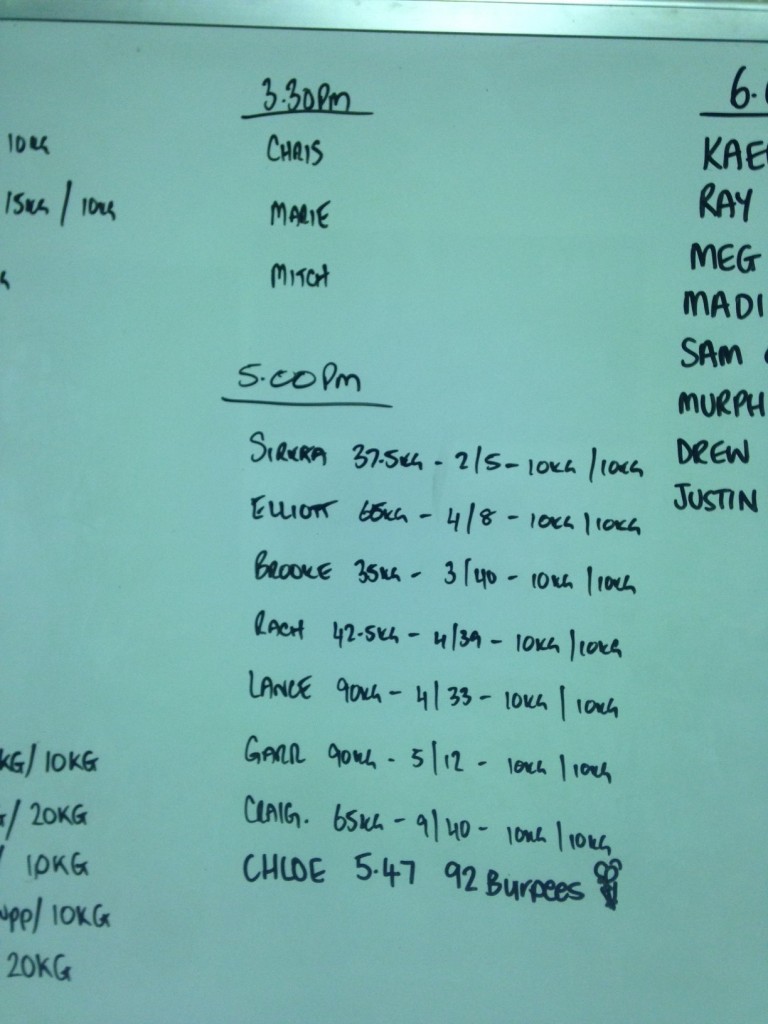 10KG
15KG / 10KG
KG/ 10KG
/ 20KG
/ 10KG
/ 10KG
20KG
3.30PM
CHRIS
MARIE
MITCH
5.00PM
37.5KG - 2/5 - 10KG / 10KG
ELLIOTT 65KG - 4/8 - 10KG / 10KG
BROOKE 35KG - 3/40 - 10KG / 10KG
RACH 42.5KG - 4/39 - 10KG / 10KG
LANCE 90KG - 4/33 - 10KG / 10KG
GARR 90KG - 5/12 - 10KG / 10KG
CRAIG. 65KG - 9/40 - 10KG / 10KG
CHLOE 5.47 92 Burpees
6.
KAE
RAY
MEG
MADI
SAM
MURPH
DREW
JUSTIN